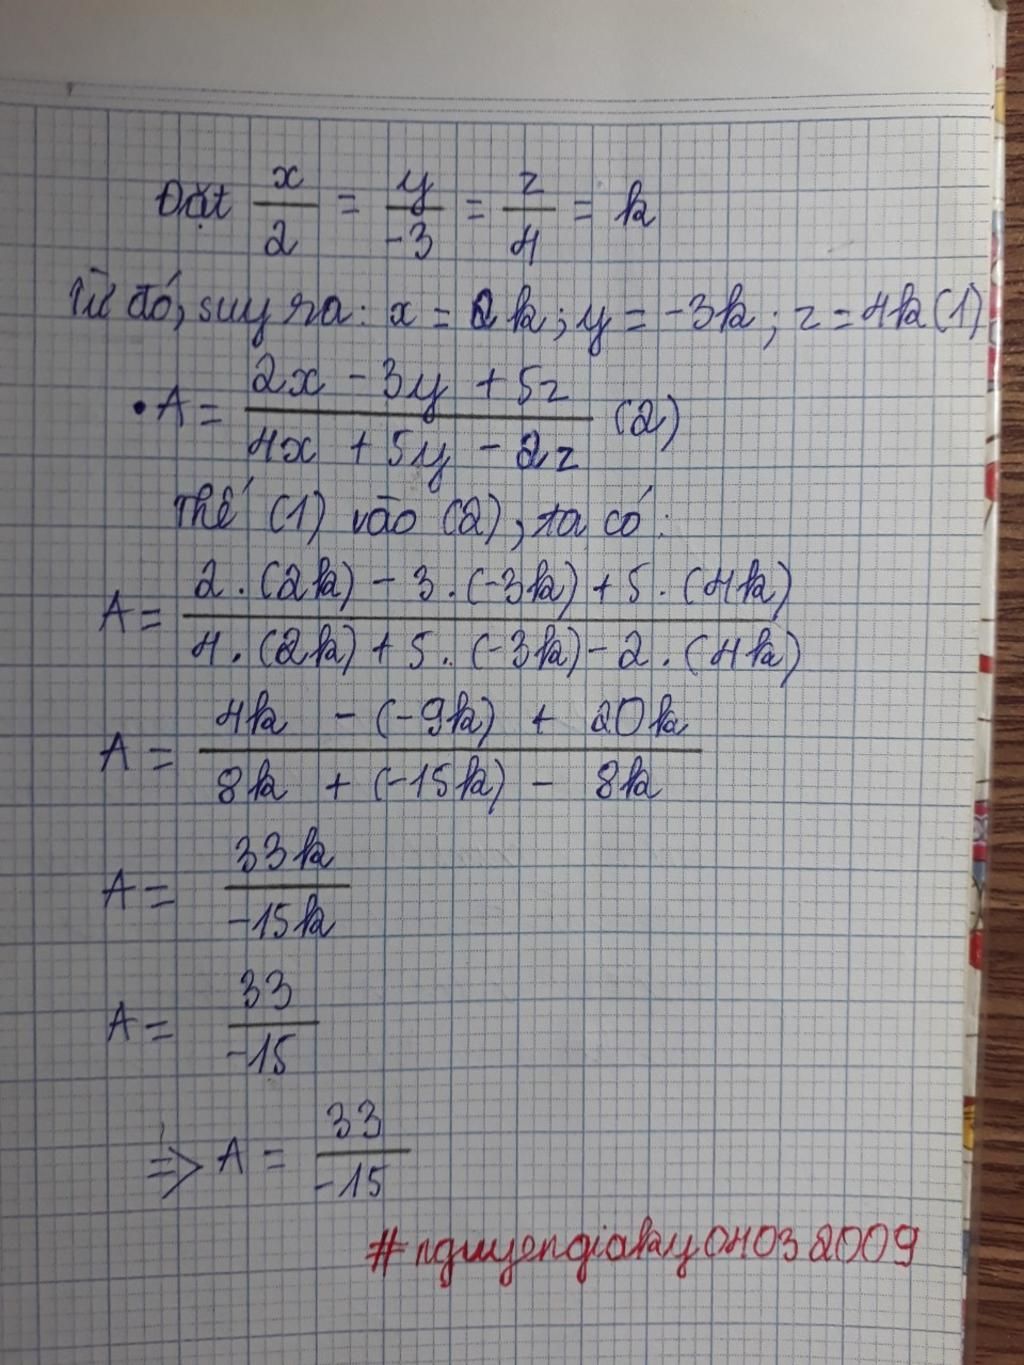 Đặt x/2 = y/-3 = z/4 = k
Từ đó, suy ra: x = 2k; y = -3k; z = 4k (1)
• A = (2x - 3y + 5z)/(4x + 5y - 2z) (2)
Thế (1) vào (2), ta có:
A = (2.(2k) - 3.(-3k) + 5.(4k))/(4.(2k) + 5.(-3k) - 2.(4k))
A = (4k - (-9k) + 20k)/(8k + (-15k) - 8k)
A = 33k/-15k
A = 33/-15
=> A = 33/-15
#nguyengiaky04032009